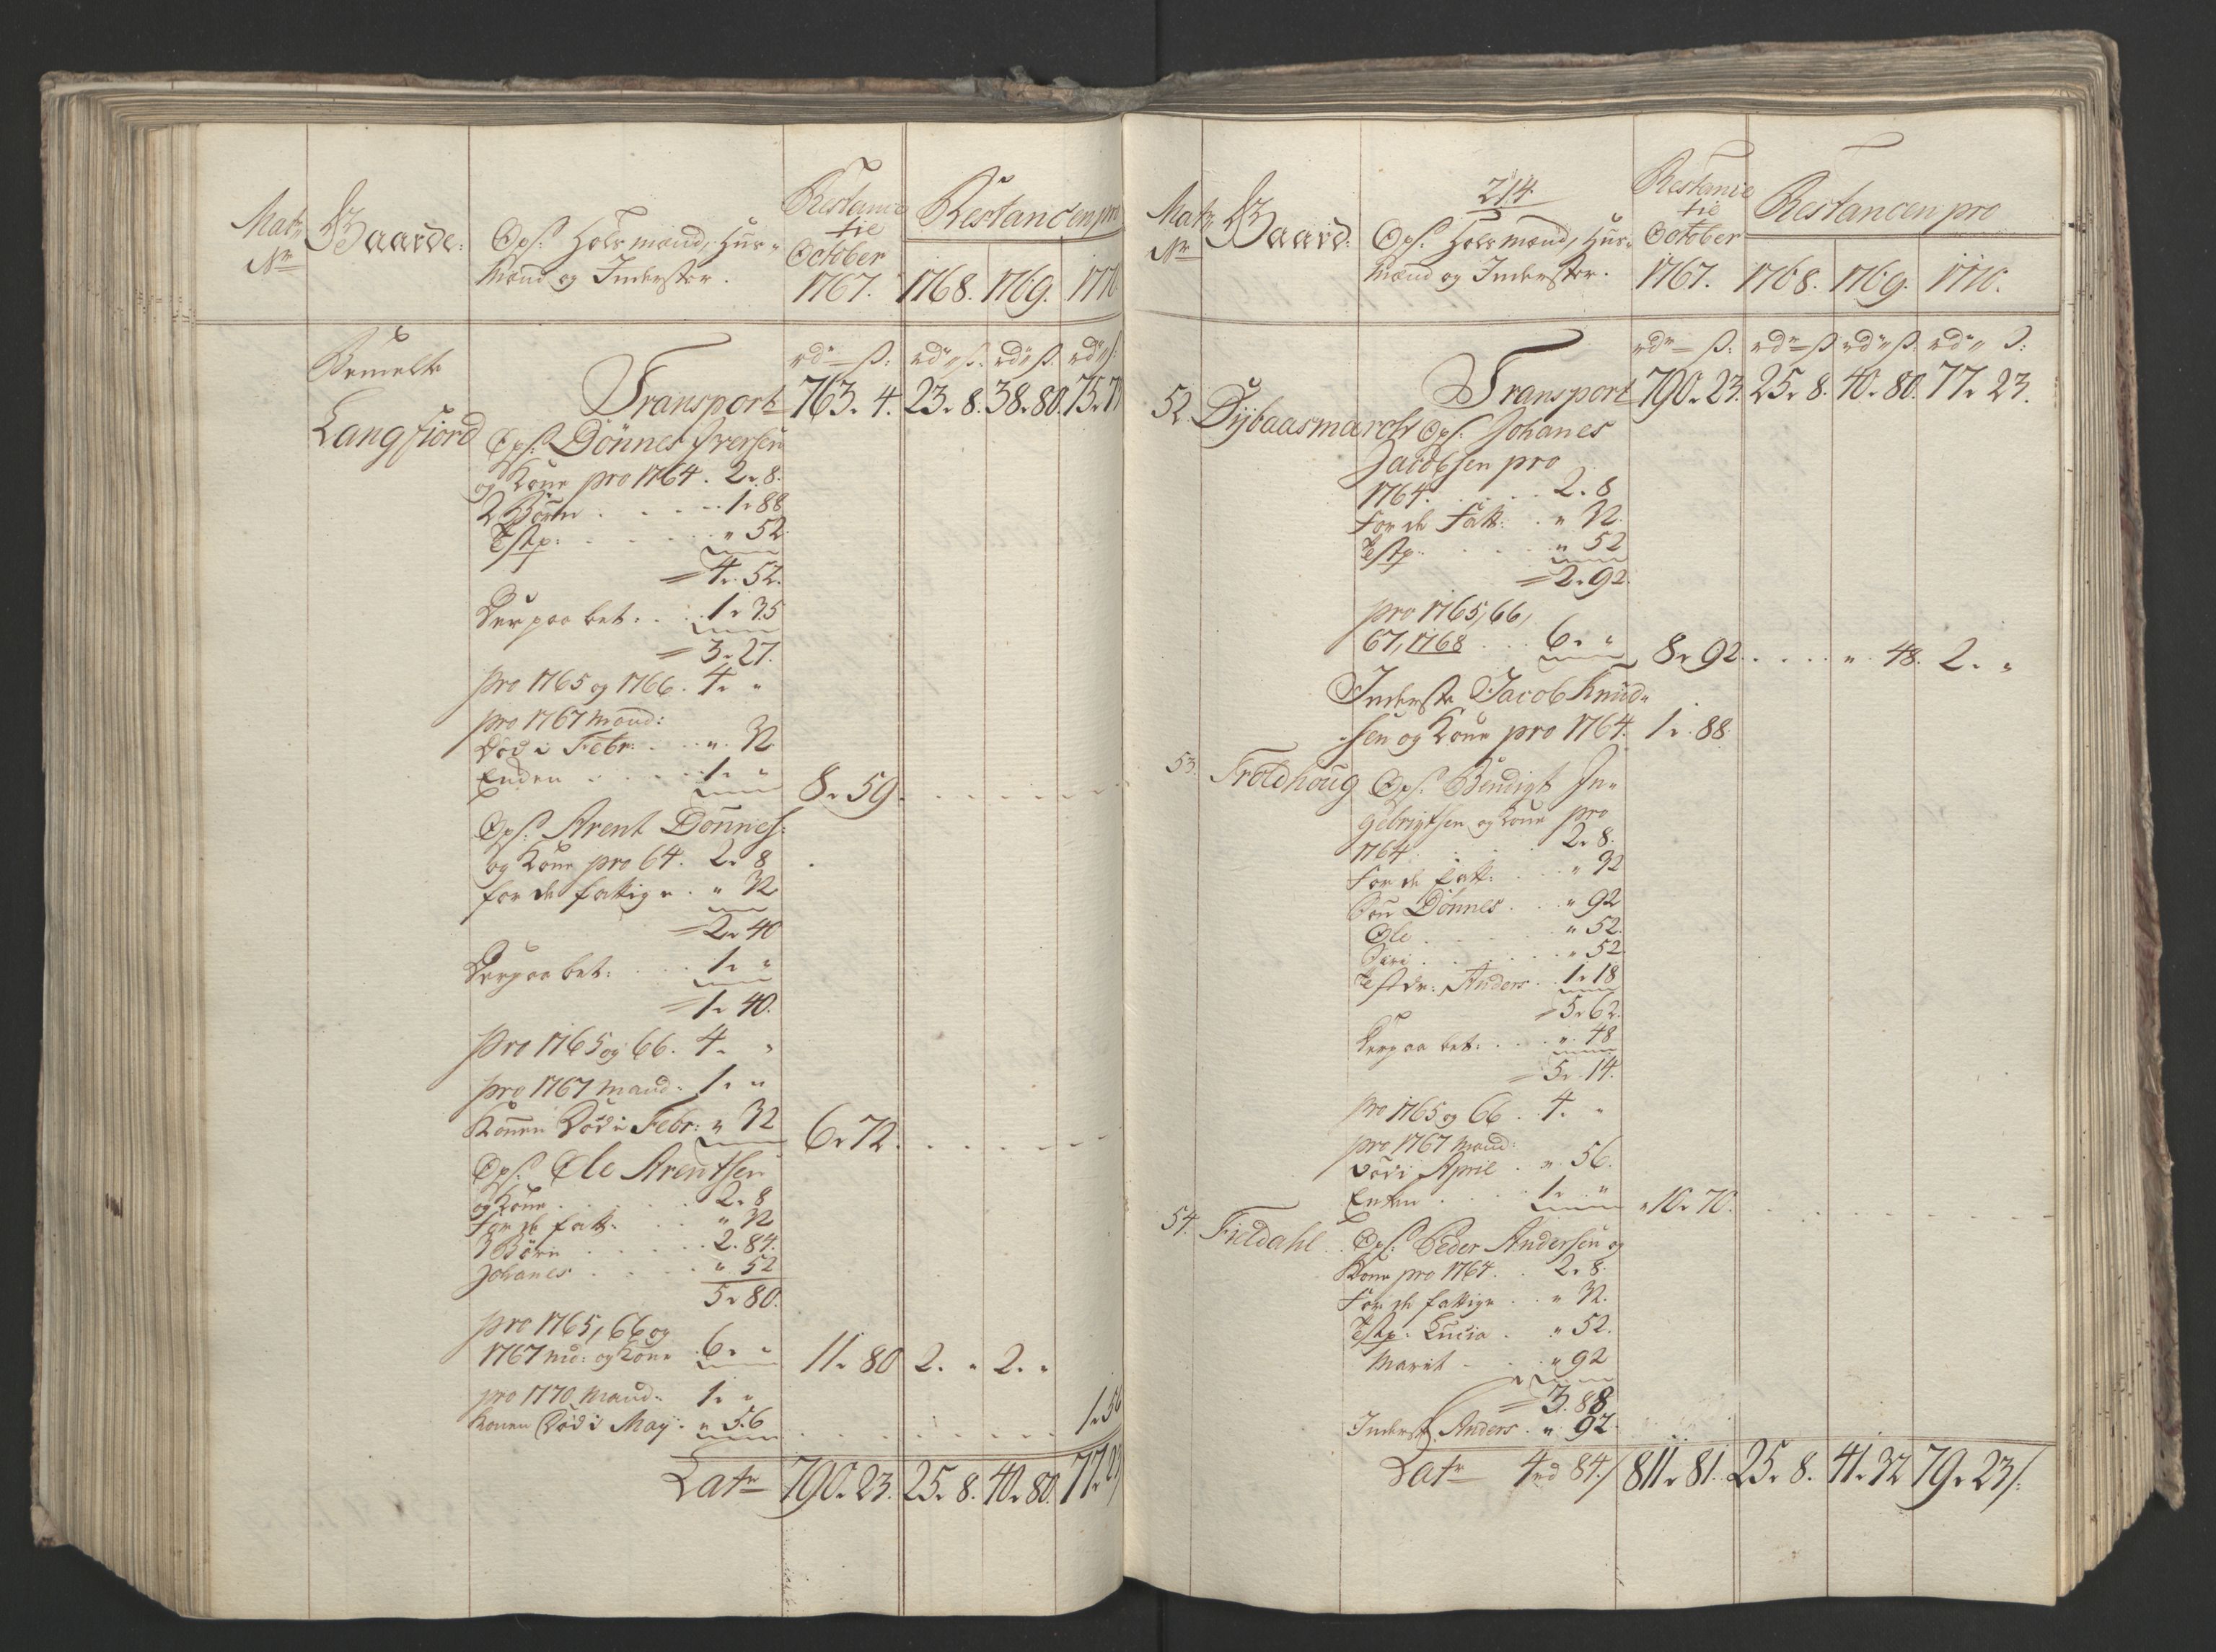 Mat:
No
Gaarde:
Ops: Holsmænd, Huus-
mænd og Inderster.
Restance
til
October
1767.
Restancen pro
1768. 1769. 1770.
rdr ß: rdr ß: rdr ß: rdr ß:
Bemelte
Transport 763. 4. 23. 8. 38. 80. 75.
Langfiord
Ops: Dönnes Iversen
og Kone pro 1764. 2. 8.
2 Börn . . . 1. 88
Tstp: . . . " 52.
= 4. 52.
Derpaa bet: . . 1. 35
= 3. 27.
pro 1765 og 1766. 4. "
pro 1767 Mand:
död i Febr: . . ". 32
Enken . . . 1. " 8. 59. . . . .
Ops: Arent Dönnes:
og Kone pro 64. 2. 8.
for de fattige . " 32
= 2. 40
Derpaa bet: . . . 1. "
= 1. 40.
pro 1765 og 66. 4. "
pro 1767 Mand: 1. "
Konen Död i Febr: " 32 6. 72. . . . .
Ops: Ole Arentsen
og Kone . . . 2. 8
For de fatt: . . " 32
3 Börn . . . 2. 84.
Johanes . . . " 52
5. 80.
pro 1765, 66 og
1767 Md: og Kone 6. " 11. 80 2. " 2. "
pro 1770 Mand: 1. "
Konen Död i May: " 56 . . . . 1. 56
Latr 790. 23. 25. 8. 40. 80. 77. 23
214.
Mat:
No
Gaard:
Ops: Holsmænd, Huus-
mænd og Inderster.
Restance
til
October
1767.
Restancen pro
1768. 1769. 1770.
rdr ß: rdr ß rdr ß: rdr ß:
Transport 790. 23. 25. 8. 40. 80. 77. 23.
52. Dybaasmarch Ops: Johanes
Jacobsen pro
1764. . . . 2. 8
For de Fatt: . " 32.
Tstp: . . . " 52
= 2. 92.
pro 1765, 66,
67, 1768 . . . 6. " 8. 92. . . . . ". 48. 2. "
Inderste Jacob Knud-
sen og Kone pro 1764. 1. 88.
53. Troldhoug Ops: Bendigt In-
gebrigtsen og Kone pro
1764 . . . 2. 8.
For de fatt: . . " 32
Sön Dönnes . . " 92
Ole . . . " 52.
Siri . . . " 52.
Tstdr: Anders . 1. 18
= 5. 62.
Derpaa bet: . . . ". 48
= 5. 14.
pro 1765 og 66 . 4. "
pro 1767 Mand:
död i April . ". 56.
Enken . . . 1. " 10. 70. . . . .
54. Fieldahl . . Ops: Peder Andersen og
Kone pro 1764. . 2. 8.
For de fattige . . " 32.
Tstp: Lucia . " 52.
Marit . . . " 92
= 3. 88
Inderst. Anders . ". 92.
Latr 4 rd 84/ 811. 81. 25. 8. 41. 32 79. 23/.